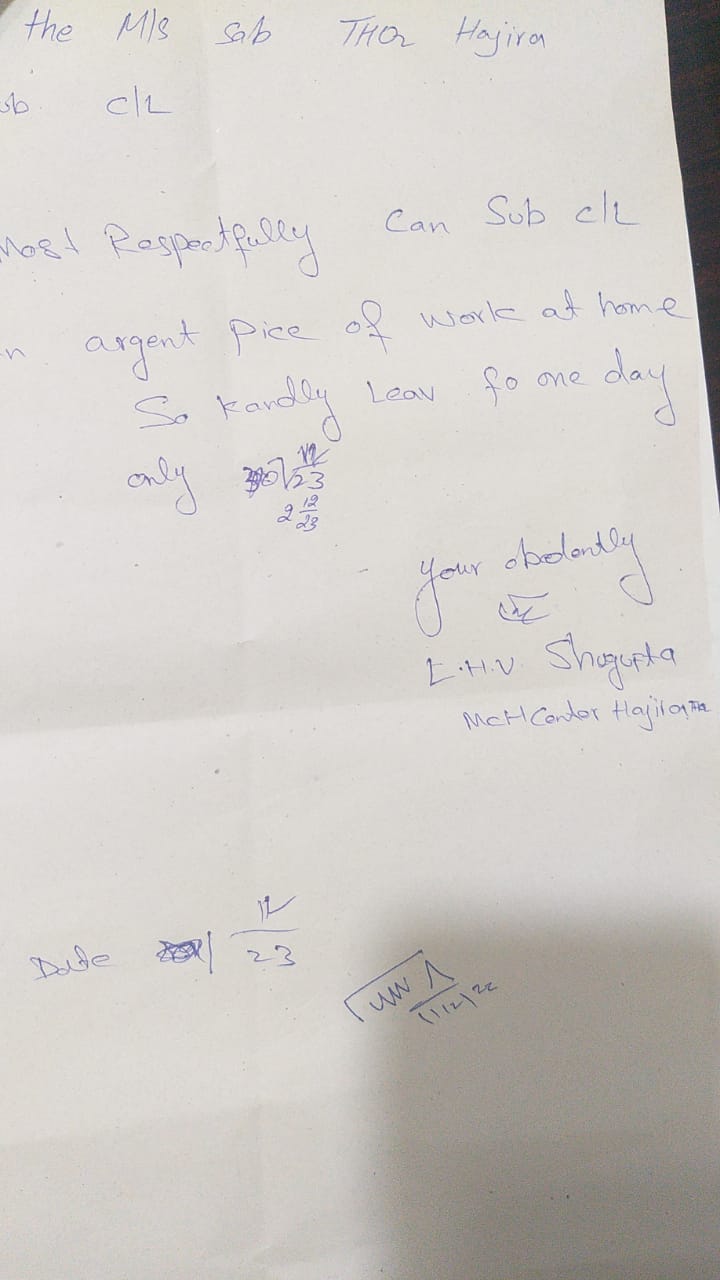 the M/S Sab THQ Hajira
ub C/L
Most Respectfully Can Sub C/L
n argent Pice of work at home
So kandly Leav fo one day
only 12/23
2 12/23
your obedently
L.H.V. Shagufta
MCH Center Hajira
Date 12/23